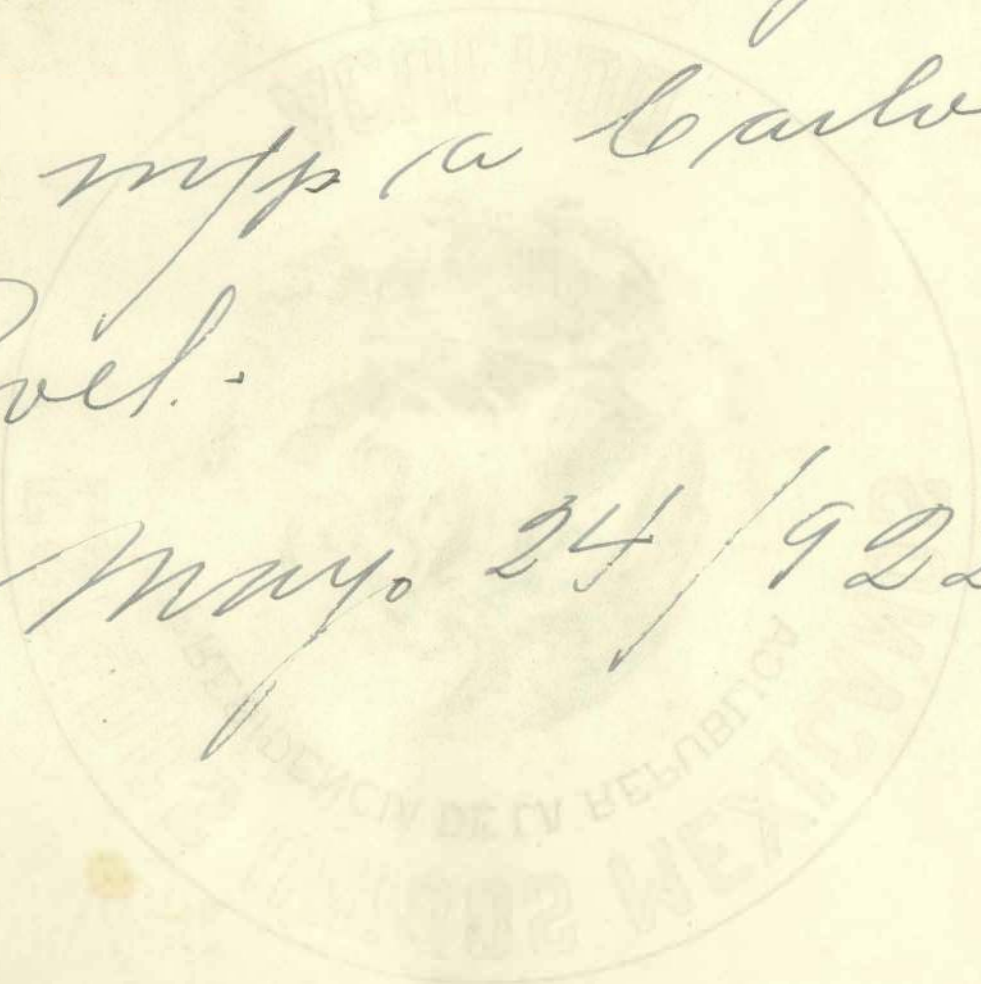 m/p a Carlo
vel.
Mayo 24/922
PRESIDENCIA DE LA REPUBLICA
DOS MEXICANOS